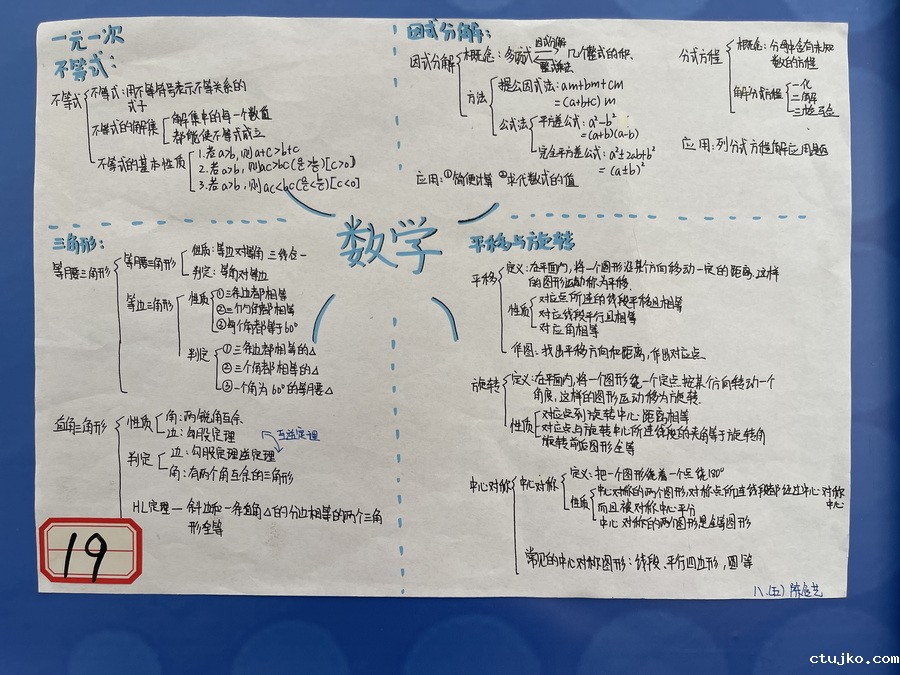 一元一次
不等式：
不等式
不等式：用不等符号表示不等关系的
式子
不等式的解集
解集中的每一个数值
都能使不等式成立
不等式的基本性质
1.若a>b,则a+c>b+c
2.若a>b,则ac>bc(a/c>b/c)[c>0]
3.若a>b,则ac<bc(a/c<b/c)[c<0]
因式分解：
因式分解
概念：多项式 因式分解 整式乘法 几个整式的积.
方法
提公因式法：am+bm+cm
=(a+b+c)m
公式法
平方差公式：a²-b²
=(a+b)(a-b)
完全平方公式：a²±2ab+b²
=(a±b)²
应用：①简便计算 ②求代数式的值
分式方程
概念：分母中含有未知
数的方程
解分式方程
一化
二解
三检
应用：列分式方程解应用题
数学
三角形：
等腰三角形
等腰三角形
性质：等边对等角 三线合一
判定：等角对等边
等边三角形
性质
①三条边都相等
②三个角都相等
③每个角都等于60°
判定
①三条边都相等的△
②三个角都相等的△
③一个角为60°的等腰△
直角三角形
性质
角：两锐角互余
边：勾股定理
互逆定理
判定
边：勾股定理逆定理
角：有两个角互余的三角形
HL定理—斜边和一条直角△的分边相等的两个三角
形全等
平移与旋转
平移
定义：在平面内,将一个图形沿某个方向移动一定的距离,这样
的图形运动称为平移.
性质
对应点所连的线段平移且相等
对应线段平行且相等
对应角相等
作图：找出平移方向和距离,作出对应点.
旋转
定义：在平面内,将一个图形绕一个定点按某个方向转动一个
角度,这样的图形运动称为旋转.
性质
对应点到旋转中心距离相等
对应点与旋转中心所连线段的夹角等于旋转角
旋转前后图形全等
中心对称
中心对称
定义：把一个图形绕着一个点绕180°
性质
中心对称的两个图形,对称点所连线段都经过中心对称
中心
而且被对称中心平分
中心对称的两个图形是全等图形
常见的中心对称图形：线段、平行四边形,圆等
19
八.(五)陈
ctujko.com